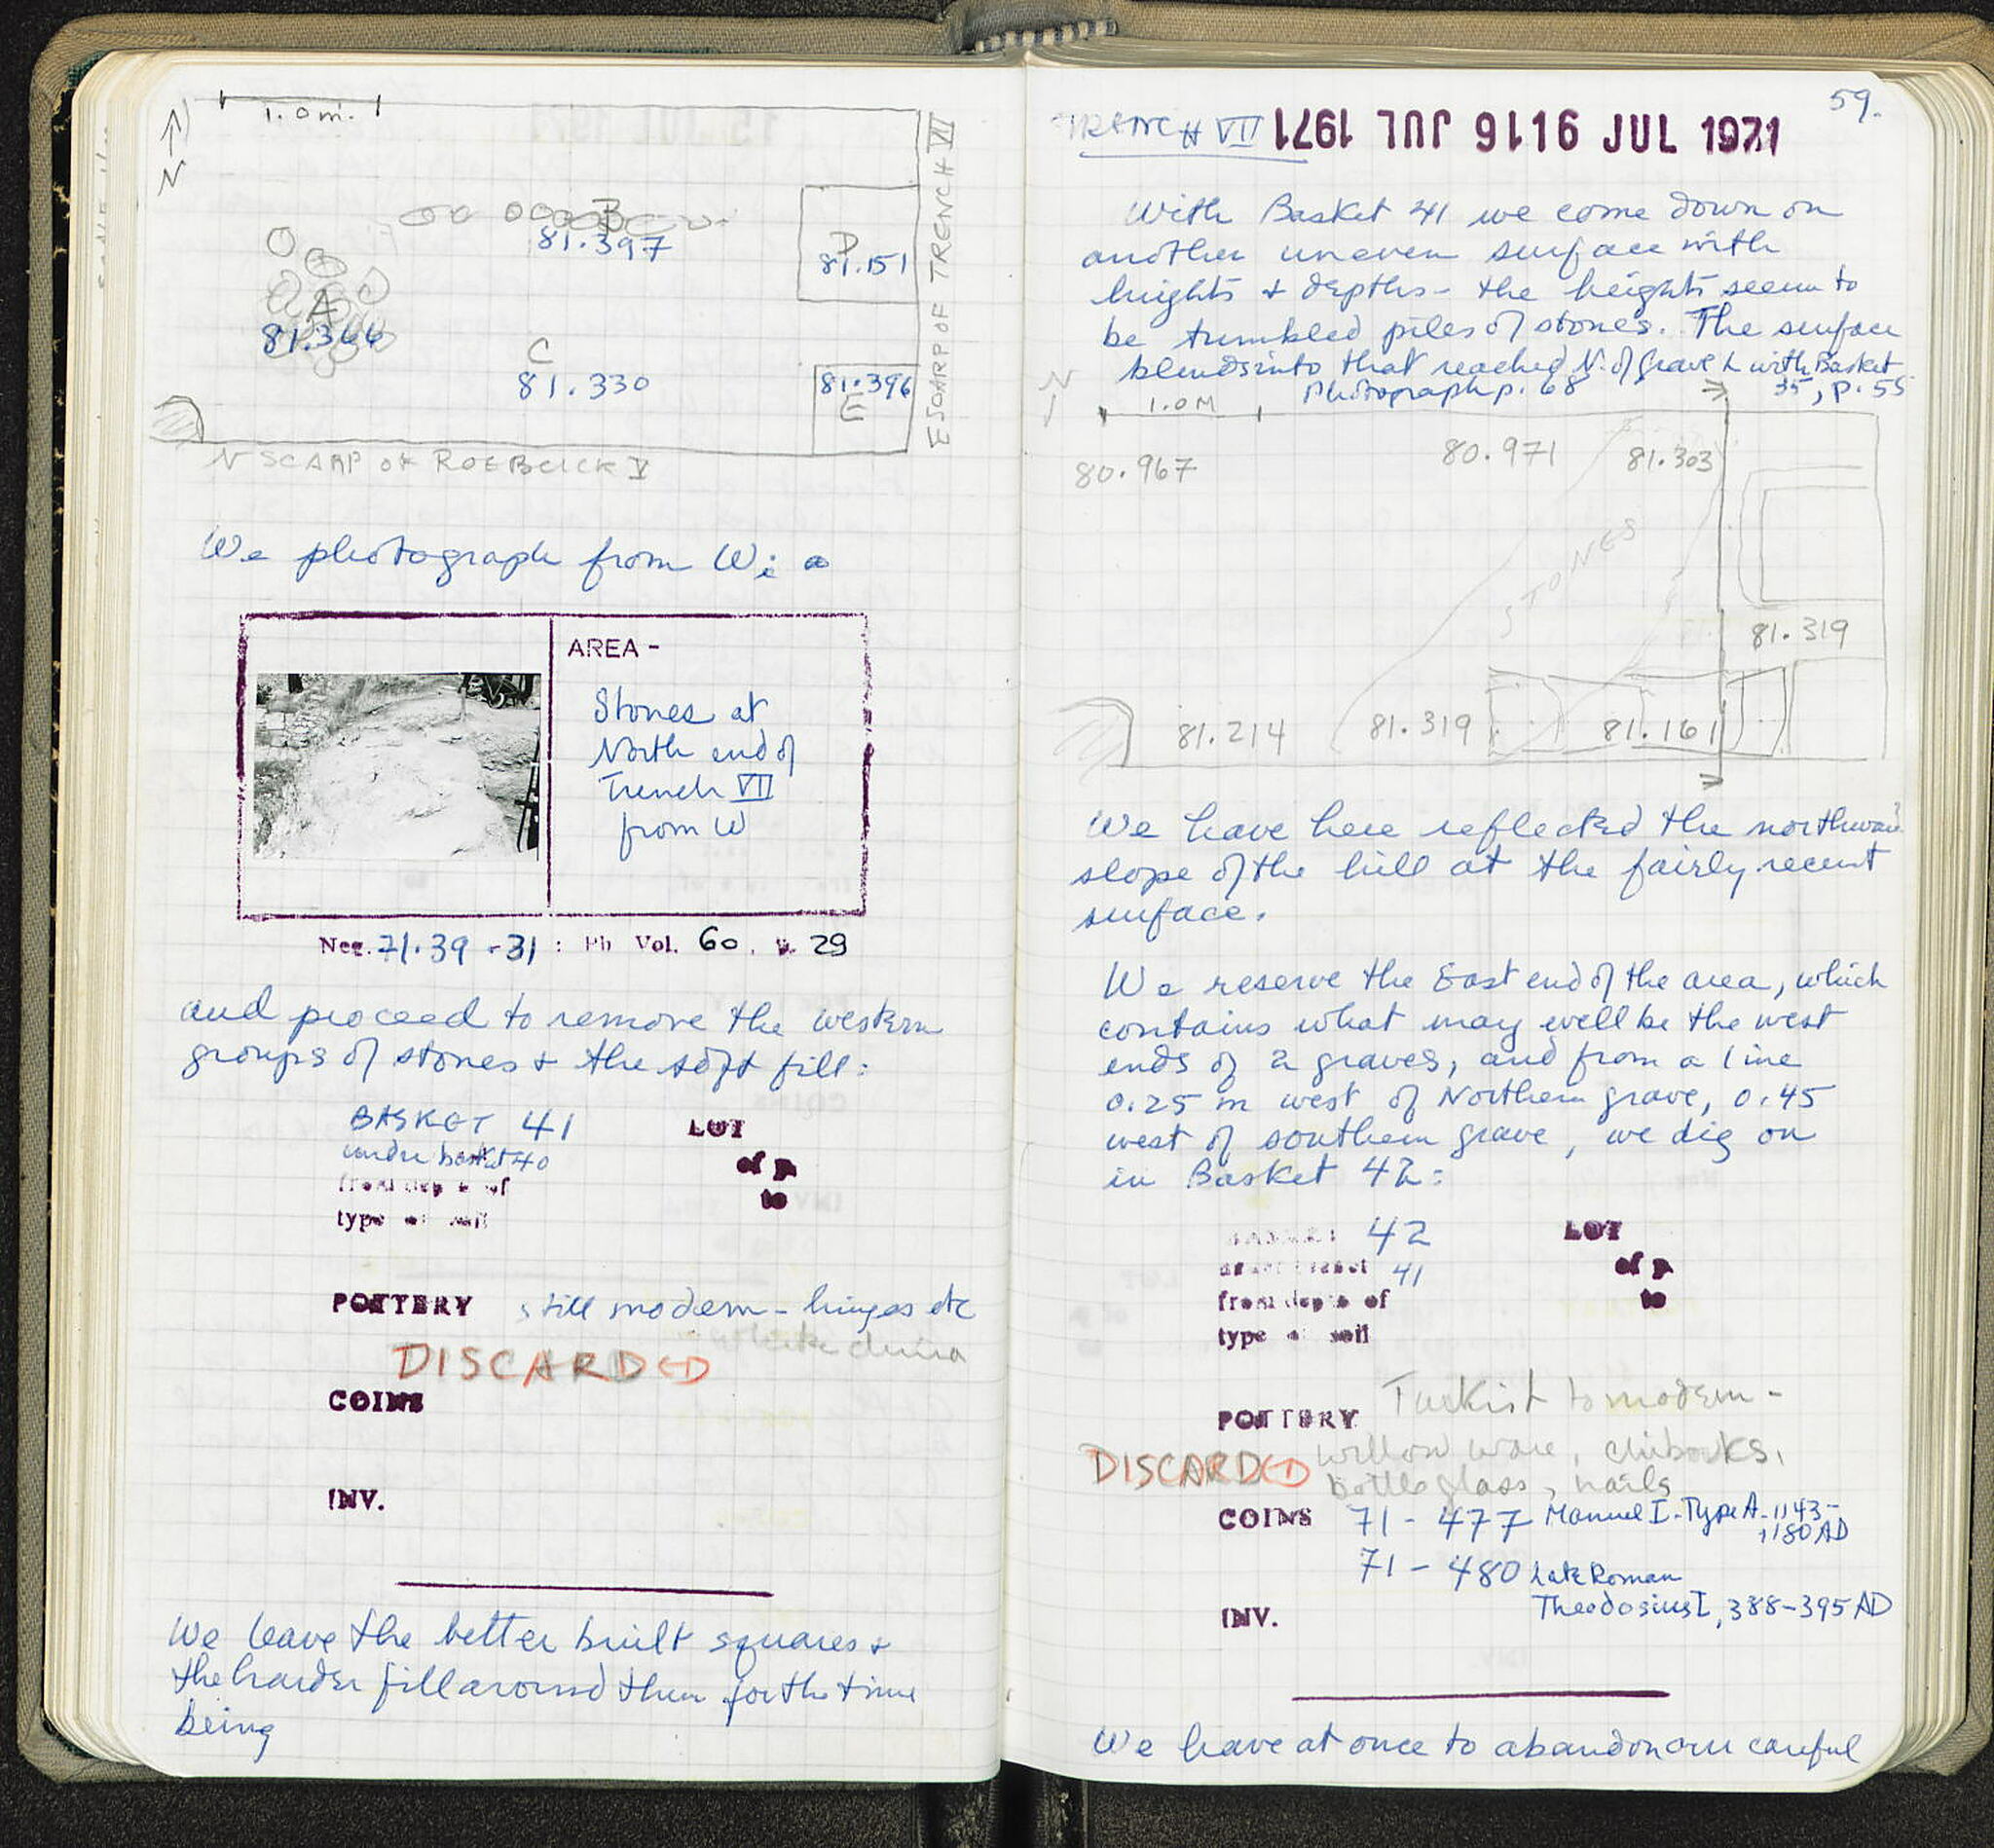 1.0m.
N
B
81.397
D
81.151
A
81.366
C
81.330
81.396
E
E SCARP OF TRENCH VI
N SCARP OF ROEBUCK V
We photograph from W:
AREA -
Stones at
North end of
Trench VII
from W
Neg. 71.39 - 31 : Ph Vol. 60, p. 29
and proceed to remove the western
groups of stones & the soft fill:
BASKET 41
under basket 40
from depth of
type of soil
LOT
of p.
to
POTTERY still modern - hinges etc
white china
DISCARDED
COINS
INV.
We leave the better built squares &
the harder fill around them for the time
being
59.
TRENCH VII 16 JUL 1971 16 JUL 1971
With Basket 41 we come down on
another uneven surface with
heights & depths - the heights seem to
be tumbled piles of stones. The surface
blends into that reached N. of Grave L with Basket
35, p. 55
Photograph p. 68
N
1.0M
80.967
80.971
81.303
STONES
81.319
81.214
81.319
81.161
We have here reflected the northward
slope of the hill at the fairly recent
surface.
We reserve the East end of the area, which
contains what may well be the west
ends of 2 graves, and from a line
0.25 m west of Northern grave, 0.45
west of southern grave, we dig on
in Basket 42:
BASKET 42
under basket 41
from depth of
type of soil
LOT
of p.
to
POTTERY Turkish to modern -
willow ware, chibouks,
bottle glass, nails
DISCARDED
COINS 71 - 477 Manuel I - Type A - 1143-
1180 AD
71 - 480 Late Roman
Theodosius I, 388-395 AD
INV.
We have at once to abandon our careful